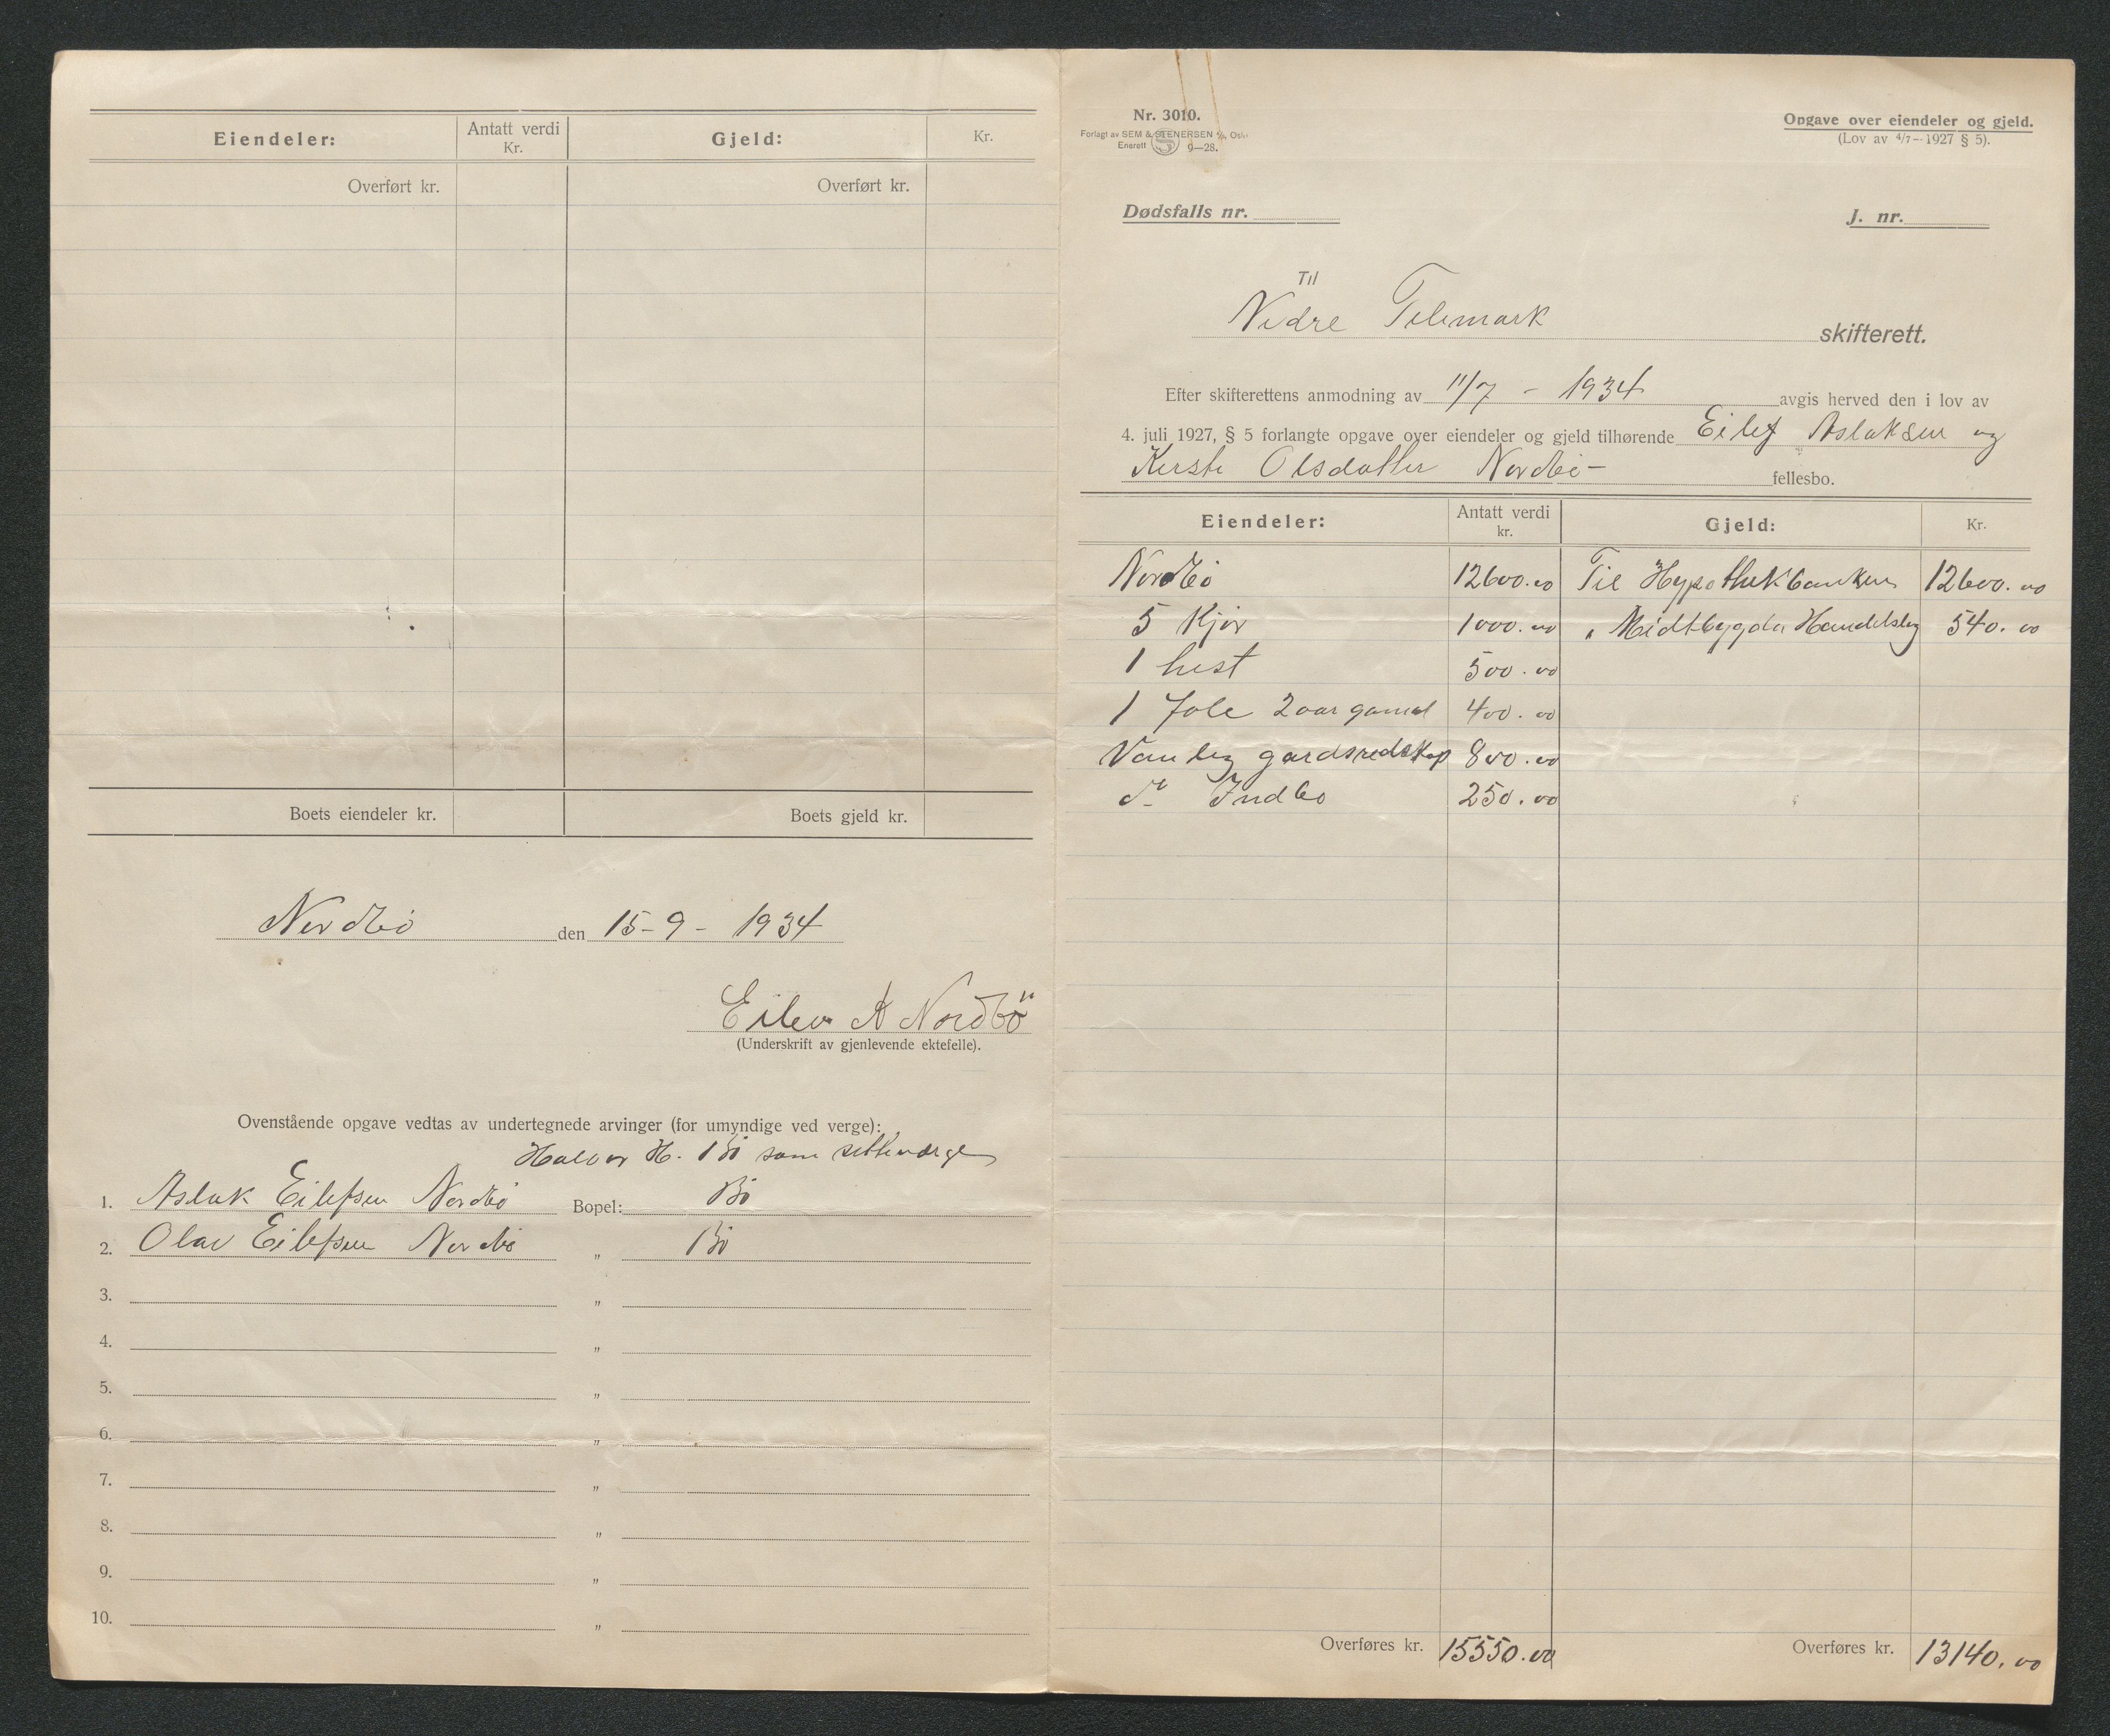 Eiendeler: Antatt verdi Kr. Gjeld: Kr.
Overført kr. Overført kr.
Boets eiendeler kr. Boets gjeld kr.
Nordbö den 15-9-1934
Eilev A Nordbö
(Underskrift av gjenlevende ektefelle).
Ovenstående opgave vedtas av undertegnede arvinger (for umyndige ved verge):
Halvor H. Bö som setteverge
1. Aslak Eilefsen Nordbö Bopel: Bö
2. Olav Eilefsen Nordbö " Bö
3. "
4. "
5. "
6. "
7. "
8. "
9. "
10. "
Nr. 3010.
Forlagt av SEM & STENERSEN A/S, Oslo
Enerett S 9—28.
Opgave over eiendeler og gjeld.
(Lov av 4/7—1927 § 5).
Dødsfalls nr. J. nr.
Til
Nedre Telemark skifterett.
Efter skifterettens anmodning av 11/7 - 1934 avgis herved den i lov av
4. juli 1927, § 5 forlangte opgave over eiendeler og gjeld tilhørende Eilef Aslaksen og
Kerste Olsdatter Nordbö - fellesbo.
Eiendeler: Antatt verdi kr. Gjeld: Kr.
Nordbö 12600.00 Til Hypothekbanken 12600.00
5 Kjör 1000.00 " Midtbygda Handelslag 540.00
1 hest 500.00
1 Fole 2 aar gamal 400.00
Vanleg gardsredskap 800.00
do Indbo 250.00
Overføres kr. 15550.00 Overføres kr. 13140.00